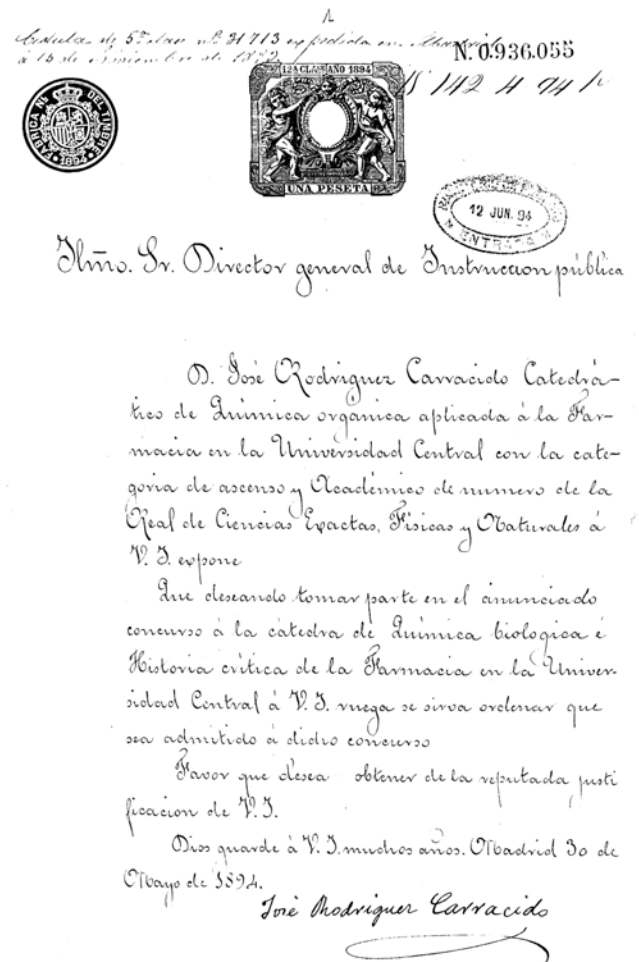 Cedula de 5ª clase nº 31713 expedida en Madrid
N. 0.936.055
FABRICA Nl. DEL TIMBRE
1894
12ª CLASE AÑO 1894
UNA PESETA
12 JUN. 94
ENTRADA
Ilmo. Sr. Director general de Instruccion pública
D. José Rodriguez Carracido Catedrá-
tico de Química orgánica aplicada á la Far-
macia en la Universidad Central con la cate-
goria de ascenso y Académico de numero de la
Real de Ciencias Exactas, Físicas y Naturales á
V. I. expone
Que deseando tomar parte en el anunciado
concurso á la cátedra de Química biologica é
Historia crítica de la Farmacia en la Univer-
sidad Central á V. I. ruega se sirva ordenar que
sea admitido á dicho concurso
Favor que desea obtener de la reputada justi
ficacion de V. I.
Dios guarde á V. I. muchos años. Madrid 30 de
Mayo de 1894.
José Rodriguez Carracido